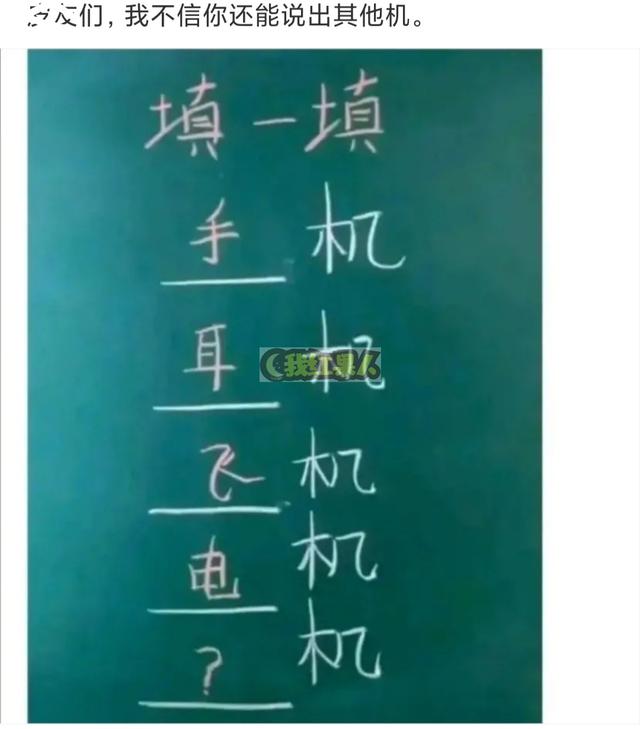 们，我不信你还能说出其他机。
填一填
手 机
耳 机
我红果人
飞 机
电 机
？ 机